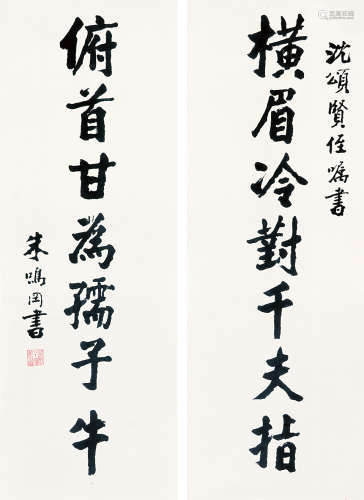 沈頌賢侄囑書
橫眉冷對千夫指
俯首甘為孺子牛
朱鳴岡書